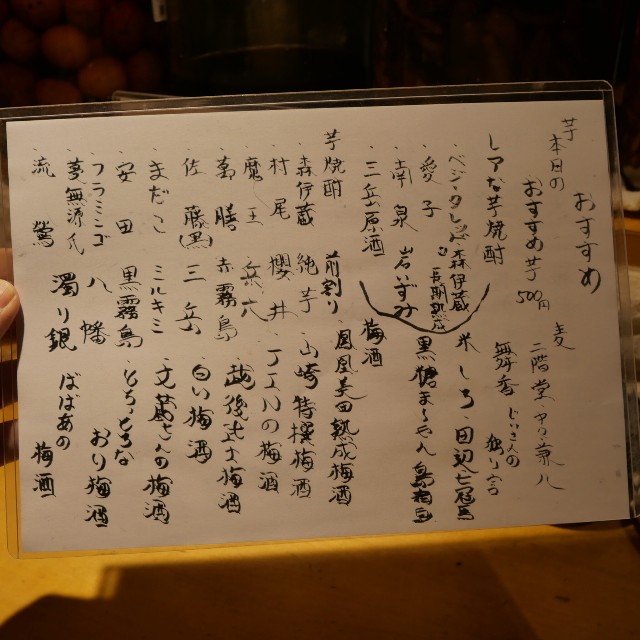 おすすめ
芋 本日のおすすめ芋 500円
麦 二階堂 兼八
舞香 じいさんの独り言
レアな芋焼酎
・森伊蔵 長期熟成
・愛子
・南泉 岩いずみ
・三岳原酒
米 しろ 田辺 七冠馬
黒糖 まーらん 島有泉
芋焼酎 前割り
・森伊蔵 純芋
・村尾 櫻井
・魔王 兵六
・萬膳 赤霧島
・佐藤(黒) 三岳
・まだこ ミルキミ
・安田 黒霧島
・フラミンゴ 八幡
・夢無源氏 濁り銀
・流鶯
梅酒
・鳳凰美田 熟成梅酒
・山崎 特撰梅酒
・丁エルの梅酒
・越後武士梅酒
・白い梅酒
・文蔵さんの梅酒
・とろっとろな おり梅酒
・ばばあの梅酒